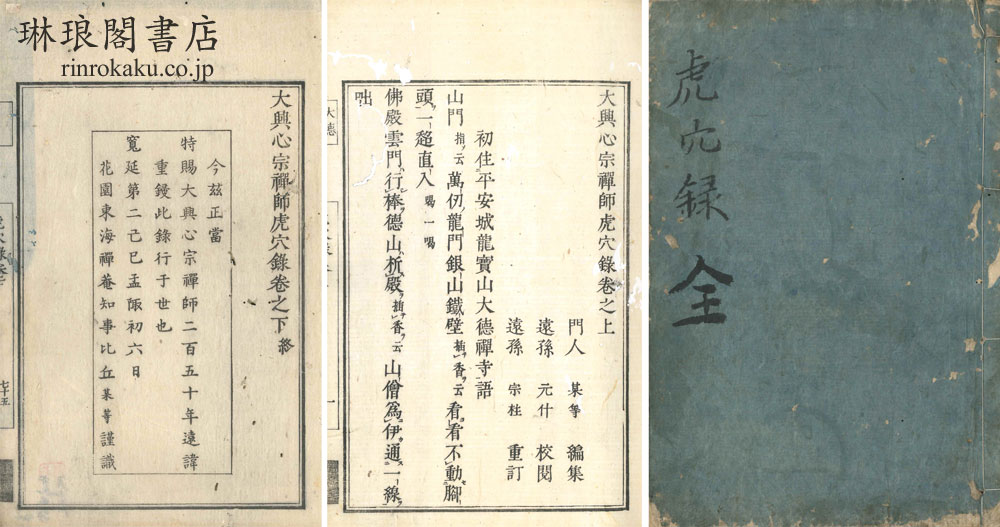 琳琅閣書店
rinrokaku.co.jp
大興心宗禪師虎穴錄卷之下 終
今茲正當
特賜大興心宗禪師二百五十年遠諱
重鋟此錄行于世也
寬延第二己巳孟陬初六日
花園東海禪菴知事比丘某等謹識
大興心宗禪師虎穴錄卷之上
門人 某等 編集
遠孫 元什 校閱
遠孫 宗柱 重訂
初住平安城龍寶山大德禪寺語
山門 指云 萬仞龍門銀山鐵壁 插香云 看看不動腳
頭一趯直入 喝一喝
佛殿雲門行棒德山析殿 插香云 山僧爲伊通一線
咄
大德
虎穴錄 全